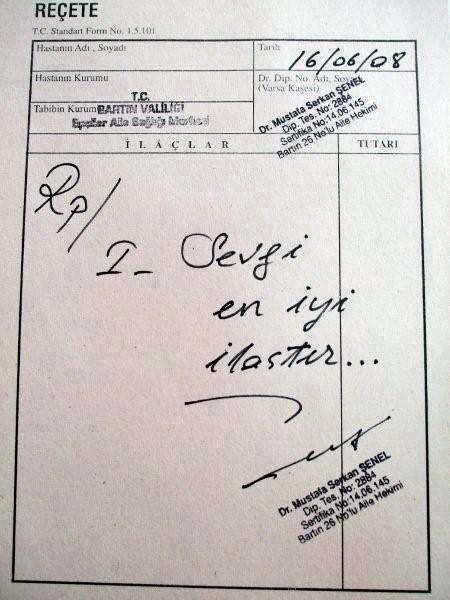 REÇETE
T.C. Standart Form No. 1.5.101
Hastanın Adı , Soyadı
Tarih
16/06/08
Hastanın Kurumu
Dr. Dip. No. Adı, Soyadı
(Varsa Kaşesi)
Dr. Mustafa Serkan ŞENEL
Dip. Tes. No: 2884
Sertifika No:14.06.145
Bartın 26 No'lu Aile Hekimi
Tabibin Kurumu
T.C.
BARTIN VALİLİĞİ
Aile Sağlığı Merkezi
İLAÇLAR
TUTARI
Rp/
I- Sevgi
en iyi
ilaçtır...
Dr. Mustafa Serkan ŞENEL
Dip. Tes. No: 2884
Sertifika No:14.06.145
Bartın 26 No'lu Aile Hekimi